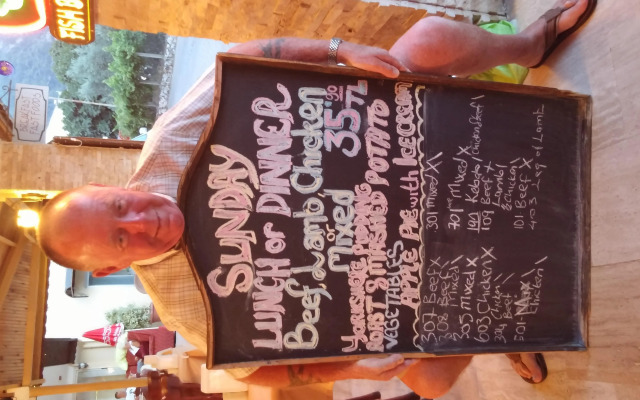 SUNDAY
LUNCH or DINNER
Beef, Lamb Chicken
or
Mixed 35.90 TL
YORKSHIRE PUDDING
ROAST & MASHED POTATO
VEGETABLES
APPLE PIE with ICE CREAM
307 Beef X
308 Beef
Mixed \
505 Mixed X
603 Chicken X
304 Chicken \
Beef
501
Chicken \
301 Mixed X X
701 Mixed X
109 Beef X
Lamb \
& Chicken \
101 Beef X
403 Leg of Lamb
FISH